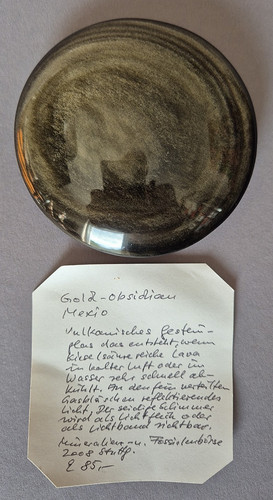 Gold-Obsidian
Mexio
Vulkanisches Gesteins-
glas das entsteht, wenn
kieselsäurereiche Lava
in kalter Luft oder im
Wasser sehr schnell ab-
kühlt. An den fein verteilten
Gasbläschen reflektierendes
Licht, Der seidige Schimmer
wird als Lichtfleck oder
als Lichtband sichtbar.
Mineralien- u. Fossilienbörse
2008 Stuttg.
€ 85,-